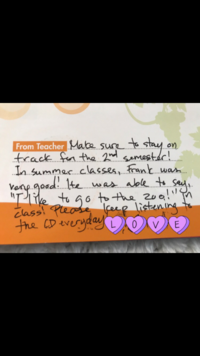 From Teacher Make sure to stay on
track for the 2nd semester!
In summer classes, Frank was
very good! He was able to say,
"I like to go to the zoo!" in
class! Please, keep listening to
the CD everyday! LOVE